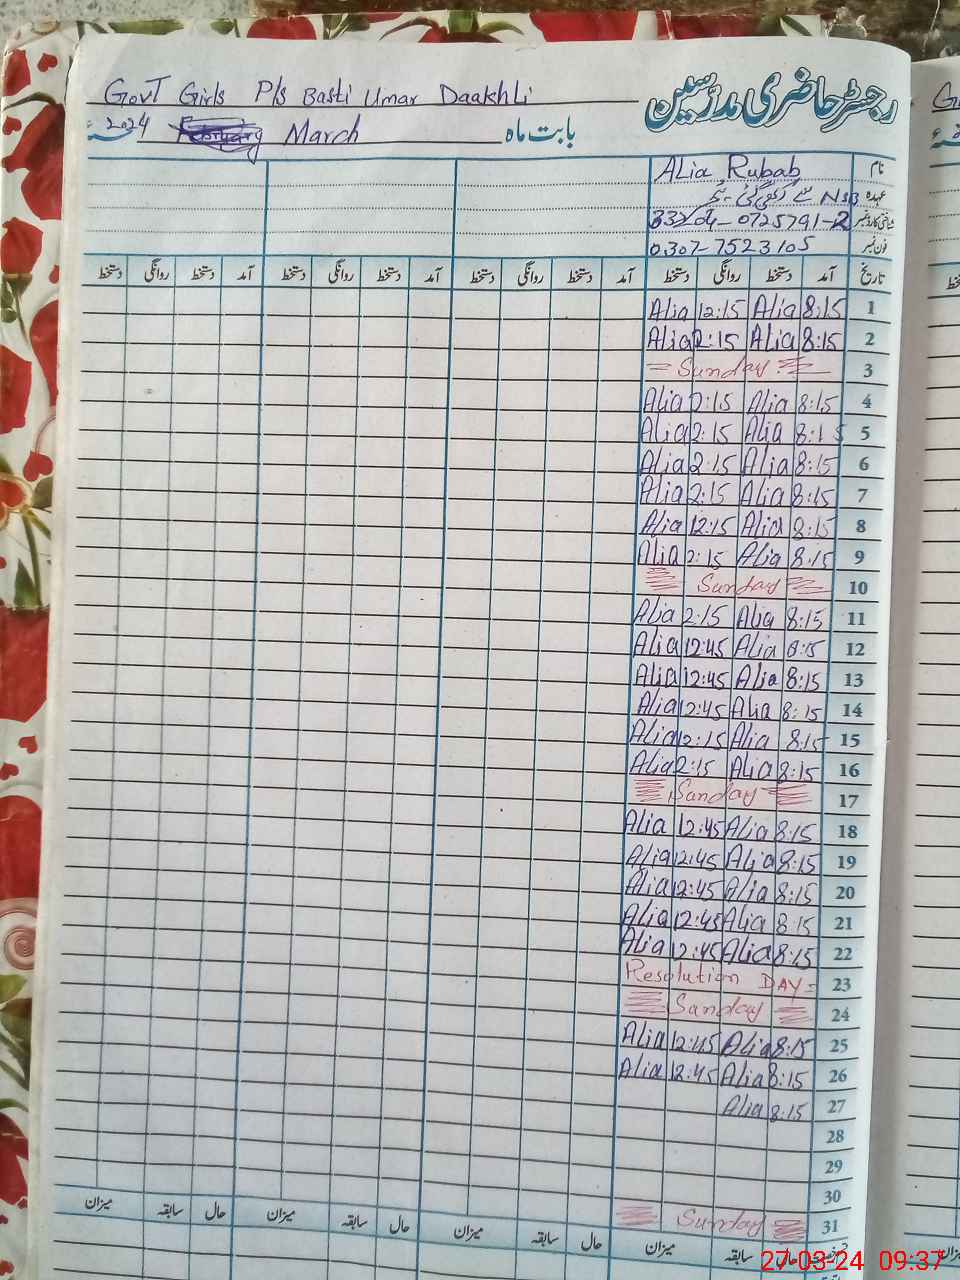 Govt Girls P/s Basti Umar Daakhli
رجسٹر حاضری مدرسین
2024 March بابت ماہ
نام Alia Rubab
عہدہ
شناختی کارڈ نمبر
فون نمبر 0307-7523105
تاریخ آمد دستخط روانگی دستخط آمد دستخط روانگی دستخط آمد دستخط روانگی دستخط آمد دستخط روانگی دستخط
Alia 12:15 Alia 8:15 1
Alia 2:15 Alia 8:15 2
Sunday 3
Alia 2:15 Alia 8:15 4
Alia 2:15 Alia 8:15 5
Alia 2:15 Alia 8:15 6
Alia 2:15 Alia 8:15 7
Alia 12:15 Alia 8:15 8
Alia 2:15 Alia 8:15 9
Sunday 10
Alia 2:15 Alia 8:15 11
Alia 12:45 Alia 8:15 12
Alia 12:45 Alia 8:15 13
Alia 12:45 Alia 8:15 14
Alia 12:15 Alia 8:15 15
Alia 2:15 Alia 8:15 16
Sanday 17
Alia 12:45 Alia 8:15 18
Alia 12:45 Alia 8:15 19
Alia 12:45 Alia 8:15 20
Alia 12:45 Alia 8:15 21
Alia 12:45 Alia 8:15 22
Resolution DAY 23
Sanday 24
Alia 12:45 Alia 8:15 25
Alia 12:45 Alia 8:15 26
Alia 8:15 27
28
29
30
Sunday 31
حال سابقہ میزان حال سابقہ میزان حال سابقہ میزان حال سابقہ میزان
27-03-24 09:37